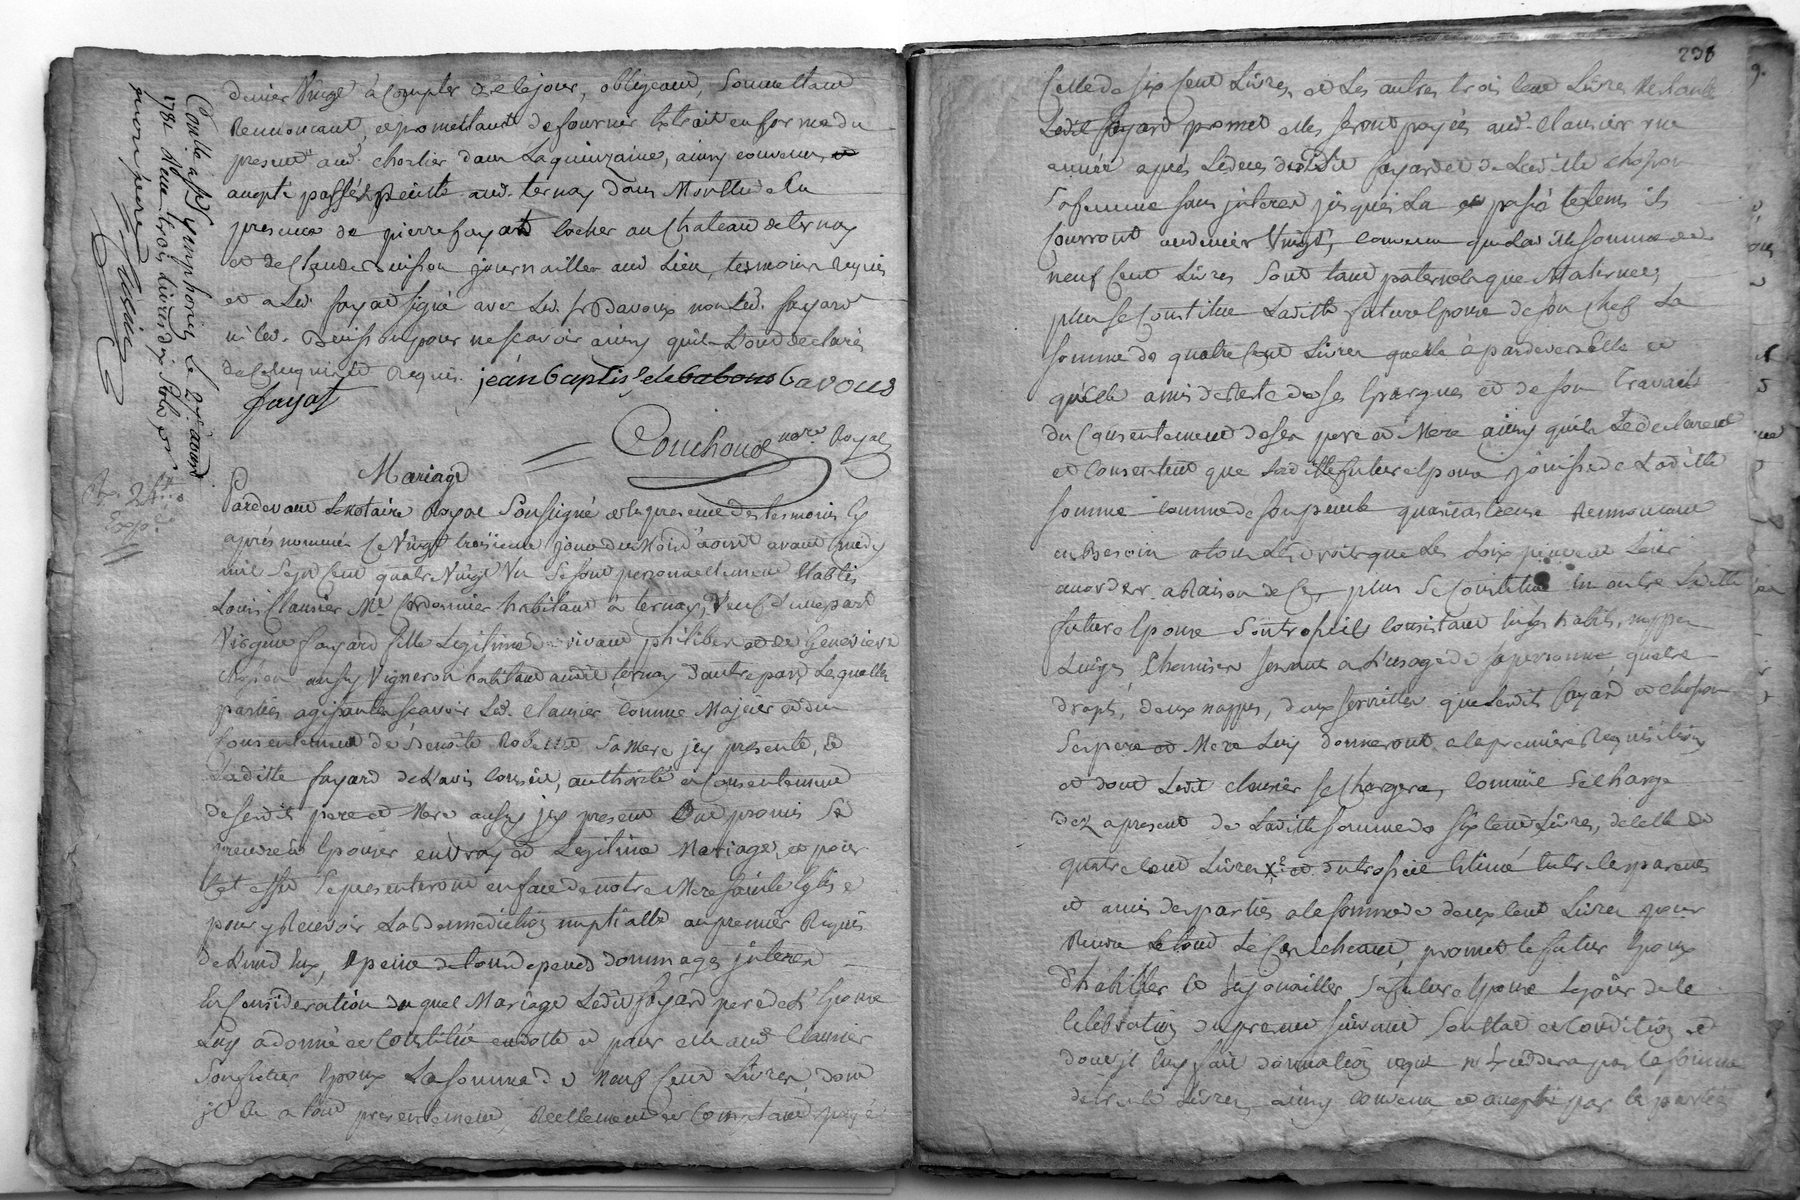 denier vingt à compter de ce jour, obligeant, Soumettant
Renoncant, et promettant de fournir Extrait en forme du
present aud. charlier dans La quinzaine, ainsy convenu et
accepté passé et Recitté aud. ternay dans
presence de pierre fayat cocher au Chateau de ternay
et de Claude buisson journaillier aud Lieu, tesmoins Requis
et a Led. fayat signé avec Led. Sr Davoux non Led. fayard
ni led. Buisson pour ne scavoir ainsy qu'ils L'ont declaré
de ce Enquis et Requis. jéan Baptis de bavous
fayat
Couchoud nore Royal
Controllé a St Symphorien Le 27e aoust
1781 Recu trois Livres dix Sols pr
mon pere
Mariage
24
Exp.
Pardevant Le Notaire Royal Soussigné et la presence des tesmoins cy
après nommés Ce vingt troisieme jour du Mois d'aoust avant midy
mil Sept Cent quatre vingt Un Se sont personnellement Etablis
Louis Clausier Me Cordonnier habitant à ternay, veuf d'une part
Virginie fayard fille Legitime de vivant philibert et de Genevieve
chosson aussy Vigneron habitant audit ternay d'autre part, Lesquelles
parties agissantes scavoir Led. Clausier comme Majeur et du
Consentement de Benoite Robette Sa Mere jcy presente, et
Laditte fayard de L'avis conseil, authorité et Consentement
de Sesdits pere et Mere aussy jcy present Ont promis Se
prendre et Epouser en vray et Legitime Mariage, et pour
Cet effet Se presenteront en face de notre Mere Sainte Eglise
pour y Recevoir La Benediction nuptialle au premier Requis
de L'un d'Eux, a peine de tous depends dommages jnterets
En Consideration duquel Mariage Ledit fayard pere de L'Epouse
Luy a donné et Constitué en dotte et pour elle aud Clausier
Son futur Epoux La Somme de Neuf Cent Livres, dont
jl En a tout presentement Reellement et Comptant payé
238
Celle de Six Cent Livres et Les autres trois Cent Livres Restante
Ledit fayard promet elles seront payées aud. Clausier une
année après Le deces dudit fayard et de Laditte chosson
Sa femme sans jnteret jusques La et passé ce tems ils
Courront au denier Vingt, convenu que Laditte Somme de
neuf Cent Livres Sont tant paternels que Maternels,
plus Se Constitue Laditte future Epouse de Son Chef La
Somme de quatre Cent Livres quelle à pardevers Elle et
quelle a mis de Reste de Ses Epargnes et de Son Travail
du Consentement de Ses pere et Mere ainsy quils Le declarent
et Consentent que Laditte future Epouse jouisse de Laditte
Somme comme de Son pecule quasicastrense Renoncant
en Besoin a tous Les droits que Les Loix peuvent Leur
accorder a Raison de Ce, plus Se Constitue En outre Laditte
future Epouse Son trossel Consistant En Ses habits, nippes
Linges, Chemises servant a L'usage de Sa personne, quatre
draps, deux nappes, deux serviettes que Lesdits fayard et chosson
Ses pere et Mere Luy donneront a la premiere Requisition
et dont Ledit Clausier se Chargera, comme Se Charge
dez a present de Laditte Somme de Six Cent Livres, de celle de
quatre Cent Livres et du trossel Estimé Entre les parents
et amis des parties a la Somme de deux Cent Livres pour
Le tout Le Cas Echeant, promet Le futur Epoux
d'habiller et Enjouailler Sa future Epouse Le jour de la
Celebration du present Suivant Son Etat et Condition et
dont jl Luy fait donnation qui n'excedera pas La Somme
de Livres, ainsy convenu et accepté par Les parties